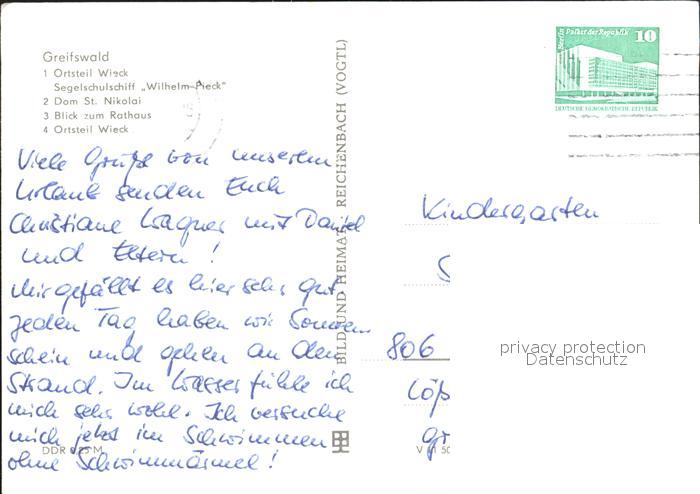 Greifswald
1 Ortsteil Wieck
Segelschulschiff „Wilhelm-Pieck"
2 Dom St. Nikolai
3 Blick zum Rathaus
4 Ortsteil Wieck
Viele Grüße von unserem
Urlaub senden Euch
Christiane Wagner mit Daniel
und Eltern!
Mir gefällt es hier sehr gut,
jeden Tag haben wir Sonnen-
schein und gehen an den
Strand. Im Wasser fühle ich
mich sehr wohl. Ich versuche
mich jetzt im Schwimmen
ohne Schwimmärmel!
DDR 0,25 M
BILD UND HEIMAT REICHENBACH (VOGTL)
Berlin Palast der Republik 10
DEUTSCHE DEMOKRATISCHE REPUBLIK
Kindergarten
806
privacy protection
Datenschutz